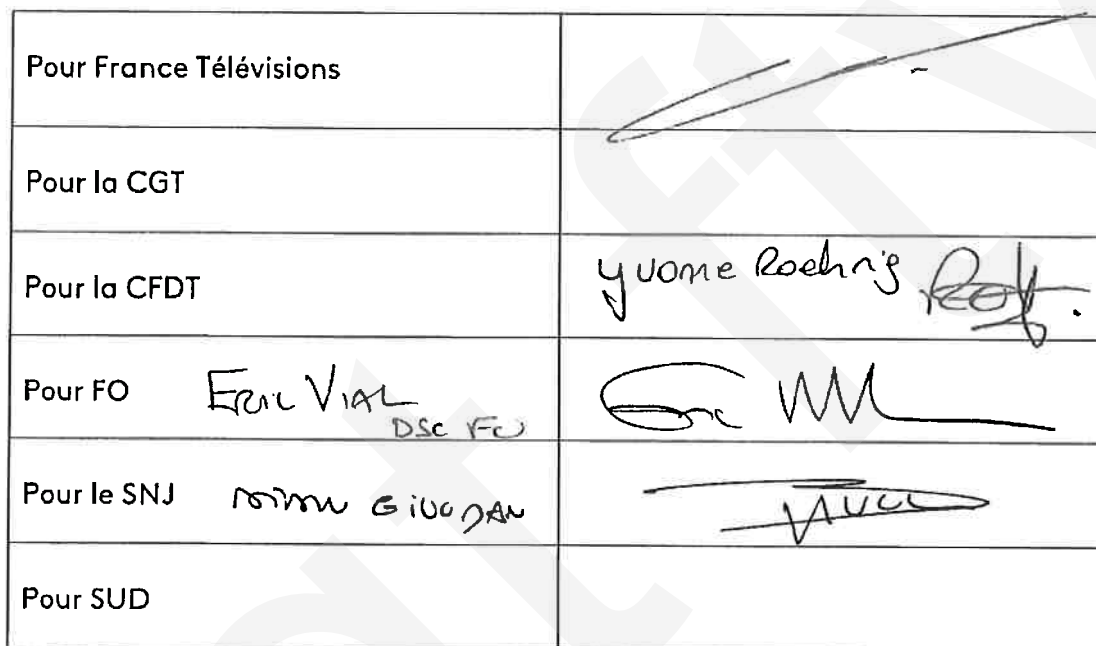 Pour France Télévisions
Pour la CGT
Pour la CFDT Yvonne Roehrig
Pour FO ERIC VIAL Eric
DSC FO
Pour le SNJ
Pour SUD